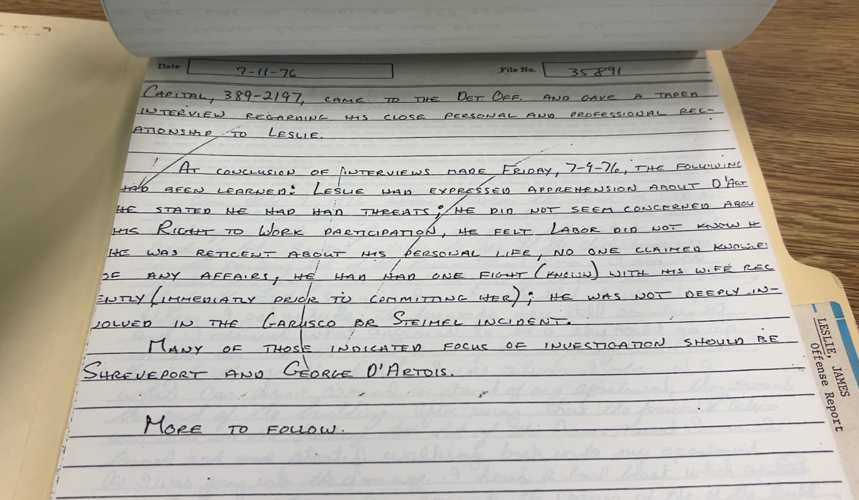 Date 7-11-76 File No. 35891
CAPITAL, 389-2197, CAME TO THE DET OFF. AND GAVE A TAPED
INTERVIEW REGARDING HIS CLOSE PERSONAL AND PROFESSIONAL REL-
ATIONSHIP TO LESLIE.
AT CONCLUSION OF INTERVIEWS MADE FRIDAY, 7-9-76, THE FOLLOWING
HAD BEEN LEARNED: LESLIE HAD EXPRESSED APPREHENSION ABOUT D'ART
HE STATED HE HAD HAD THREATS; HE DID NOT SEEM CONCERNED ABOU
HIS RIGHT TO WORK PARTICIPATION, HE FELT LABOR DID NOT KNOW H
HE WAS RETICENT ABOUT HIS PERSONAL LIFE, NO ONE CLAIMED KNOWLE
OF ANY AFFAIRS, HE HAD HAD ONE FIGHT (KNOWN) WITH HIS WIFE REC
ENTLY (IMMEDIATLY PRIOR TO COMMITTING HER); HE WAS NOT DEEPLY IN-
VOLVED IN THE GARUSCO OR STEIMEL INCIDENT.
MANY OF THOSE INDICATED FOCUS OF INVESTIGATION SHOULD BE
SHREVEPORT AND GEORGE D'ARTOIS.
MORE TO FOLLOW.
LESLIE, JAMES
Offense Report